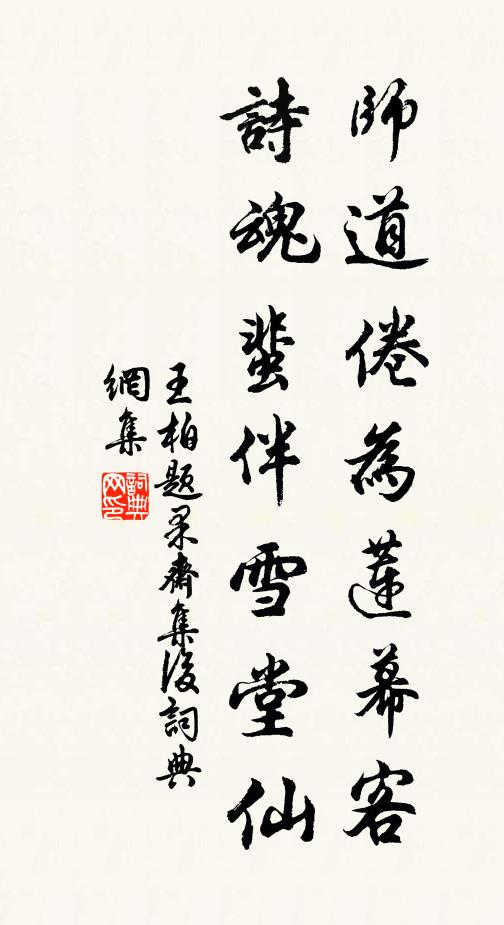 師道倦為蓮幕客
詩魂蜚伴雪堂仙
王柏題果齋集後詞典
網集
詞典
网印